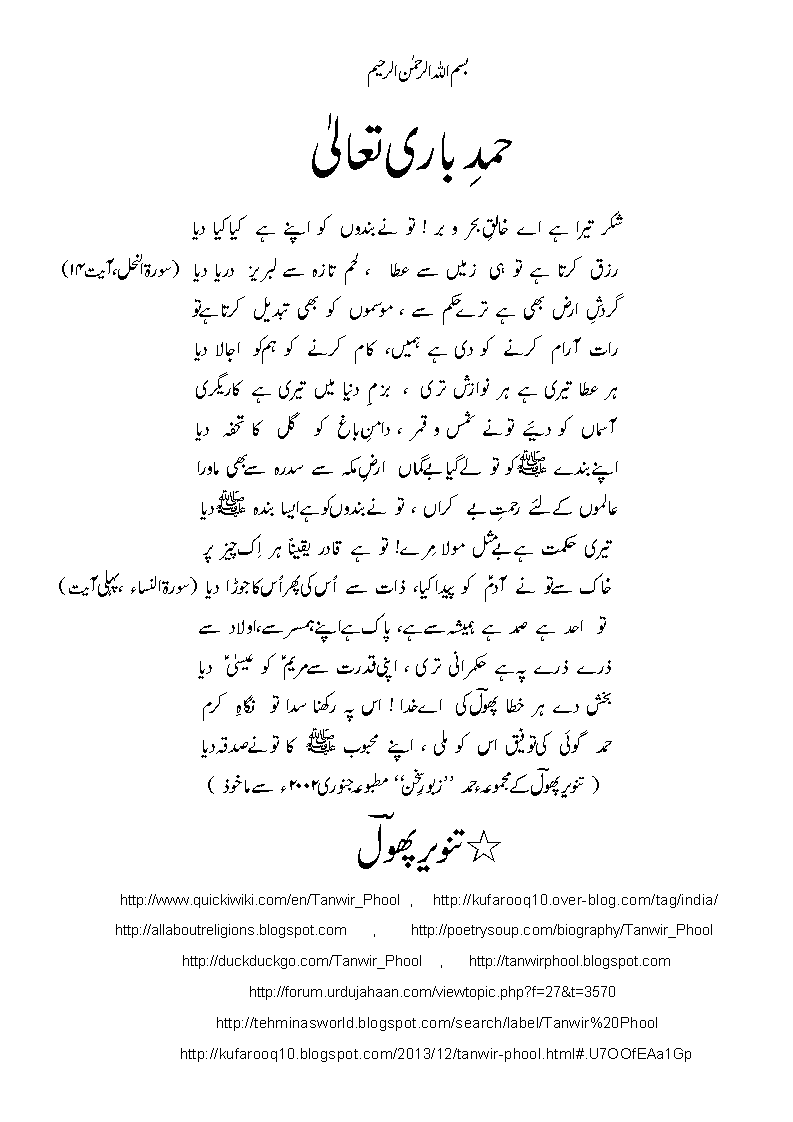 بسم اللہ الرحمٰن الرحیم
حمدِ باری تعالیٰ
شکر تیرا ہے اے خالقِ بحر و بر ! تو نے بندوں کو اپنے ہے کیا کیا دیا
رزق کرتا ہے تو ہی زمیں سے عطا ، لحم تازہ سے لبریز دریا دیا (سورۃ النحل، آیت ۱۴)
گردشِ ارض بھی ہے ترے حکم سے ، موسموں کو بھی تبدیل کرتا ہے تو
رات آرام کرنے کو دی ہے ہمیں، کام کرنے کو ہم کو اجالا دیا
ہر عطا تیری ہے ہر نوازش تری ، بزمِ دنیا میں تیری ہے کاریگری
آسماں کو دیئے تو نے شمس و قمر ، دامنِ باغ کو گل کا تحفہ دیا
اپنے بندے ﷺ کو تو لے گیا بے گماں ارضِ مکہ سے سدرہ سے بھی ماورا
عالموں کے لئے رحمتِ بے کراں ، تو نے بندوں کو ہے ایسا بندہ ﷺ دیا
تیری حکمت ہے بے مثل مولا مِرے! تو ہے قادر یقیناً ہر اِک چیز پر
خاک سے تو نے آدمؑ کو پیدا کیا، ذات سے اُس کی پھر اُس کا جوڑا دیا (سورۃ النساء ، پہلی آیت)
تو احد ہے صمد ہے ہمیشہ سے ہے، پاک ہے اپنے ہمسر سے، اولاد سے
ذرے ذرے پہ ہے حکمرانی تری ، اپنی قدرت سے مریمؑ کو عیسیٰؑ دیا
بخش دے ہر خطا پھولؔ کی اے خدا ! اس پہ رکھنا سدا تو نگاہِ کرم
حمد گوئی کی توفیق اس کو ملی ، اپنے محبوب ﷺ کا تو نے صدقہ دیا
( تنویر پھولؔ کے مجموعۂ حمد ’’زبورِ سخن‘‘ مطبوعہ جنوری ۲۰۰۲ء سے ماخوذ )
☆ تنویر پھولؔ
http://www.quickiwiki.com/en/Tanwir_Phool , http://kufarooq10.over-blog.com/tag/india/
http://allaboutreligions.blogspot.com , http://poetrysoup.com/biography/Tanwir_Phool
http://duckduckgo.com/Tanwir_Phool , http://tanwirphool.blogspot.com
http://forum.urdujahaan.com/viewtopic.php?f=27&t=3570
http://tehminasworld.blogspot.com/search/label/Tanwir%20Phool
http://kufarooq10.blogspot.com/2013/12/tanwir-phool.html#.U7OOfEAa1Gp